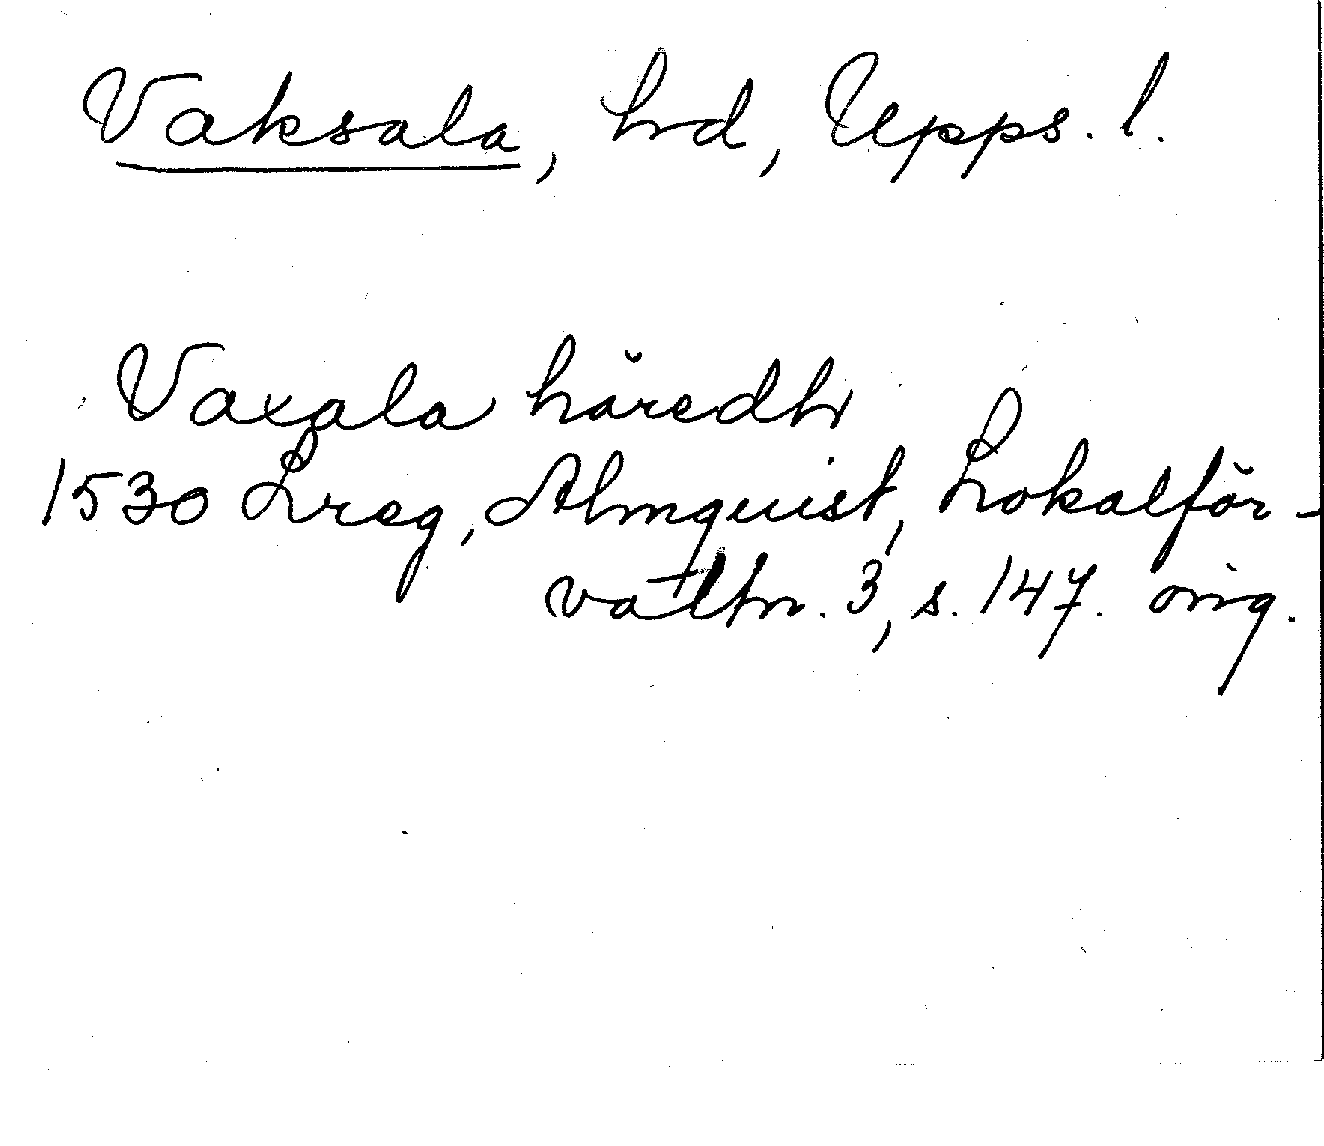 Vaksala, hd, Upps. l.
Vaxala häredh
1530 Lreg, Almquist, Lokalför-
valtn. 3, s. 147. orig.